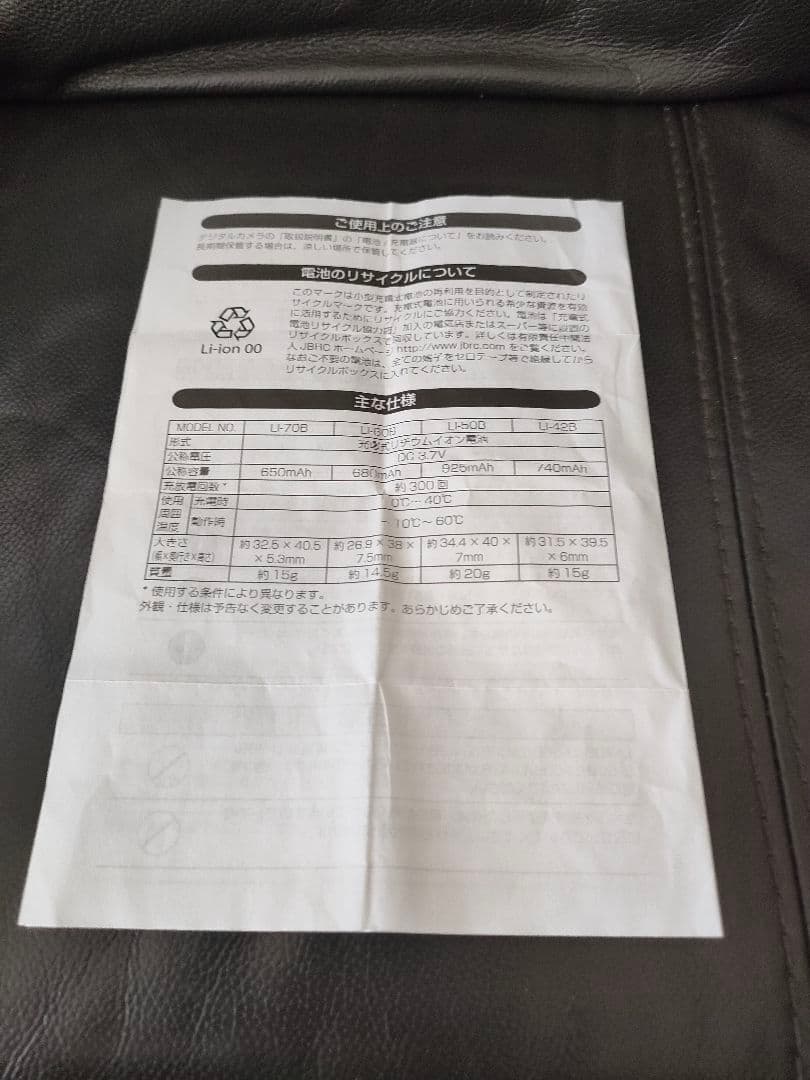 ご使用上のご注意
デジタルカメラの「取扱説明書」の「電池/充電器について」をお読みください。
長期間保管する場合は、涼しい場所で保管してください。
電池のリサイクルについて
このマークは小型充電式電池の再利用を目的として制定されたリ
サイクルマークです。充電式電池に用いられる希少な資源を有効
に活用するためにリサイクルにご協力ください。電池は「充電式
電池リサイクル協力店」加入の電気店またはスーパー等に設置の
リサイクルボックスで回収しています。詳しくは有限責任中間法
人JBRCホームページhttp://www.jbrc.comをご覧ください。
なおご不要の電池は、全ての端子をセロテープ等で絶縁してから
リサイクルボックスに入れてください。
Li-ion 00
主な仕様
MODEL NO. LI-70B LI-60B LI-50B LI-42B
形式 充電式リチウムイオン電池
公称電圧 DC 3.7V
公称容量 650mAh 680mAh 925mAh 740mAh
充放電回数* 約300回
使用周囲温度 充電時 0℃~40℃
動作時 -10℃~60℃
大きさ 約32.5×40.5 約26.9×38× 約34.4×40× 約31.5×39.5
(幅×奥行き×高さ) ×5.3mm 7.5mm 7mm ×6mm
質量 約15g 約14.5g 約20g 約15g
*使用する条件により異なります。
外観・仕様は予告なく変更することがあります。あらかじめご了承ください。